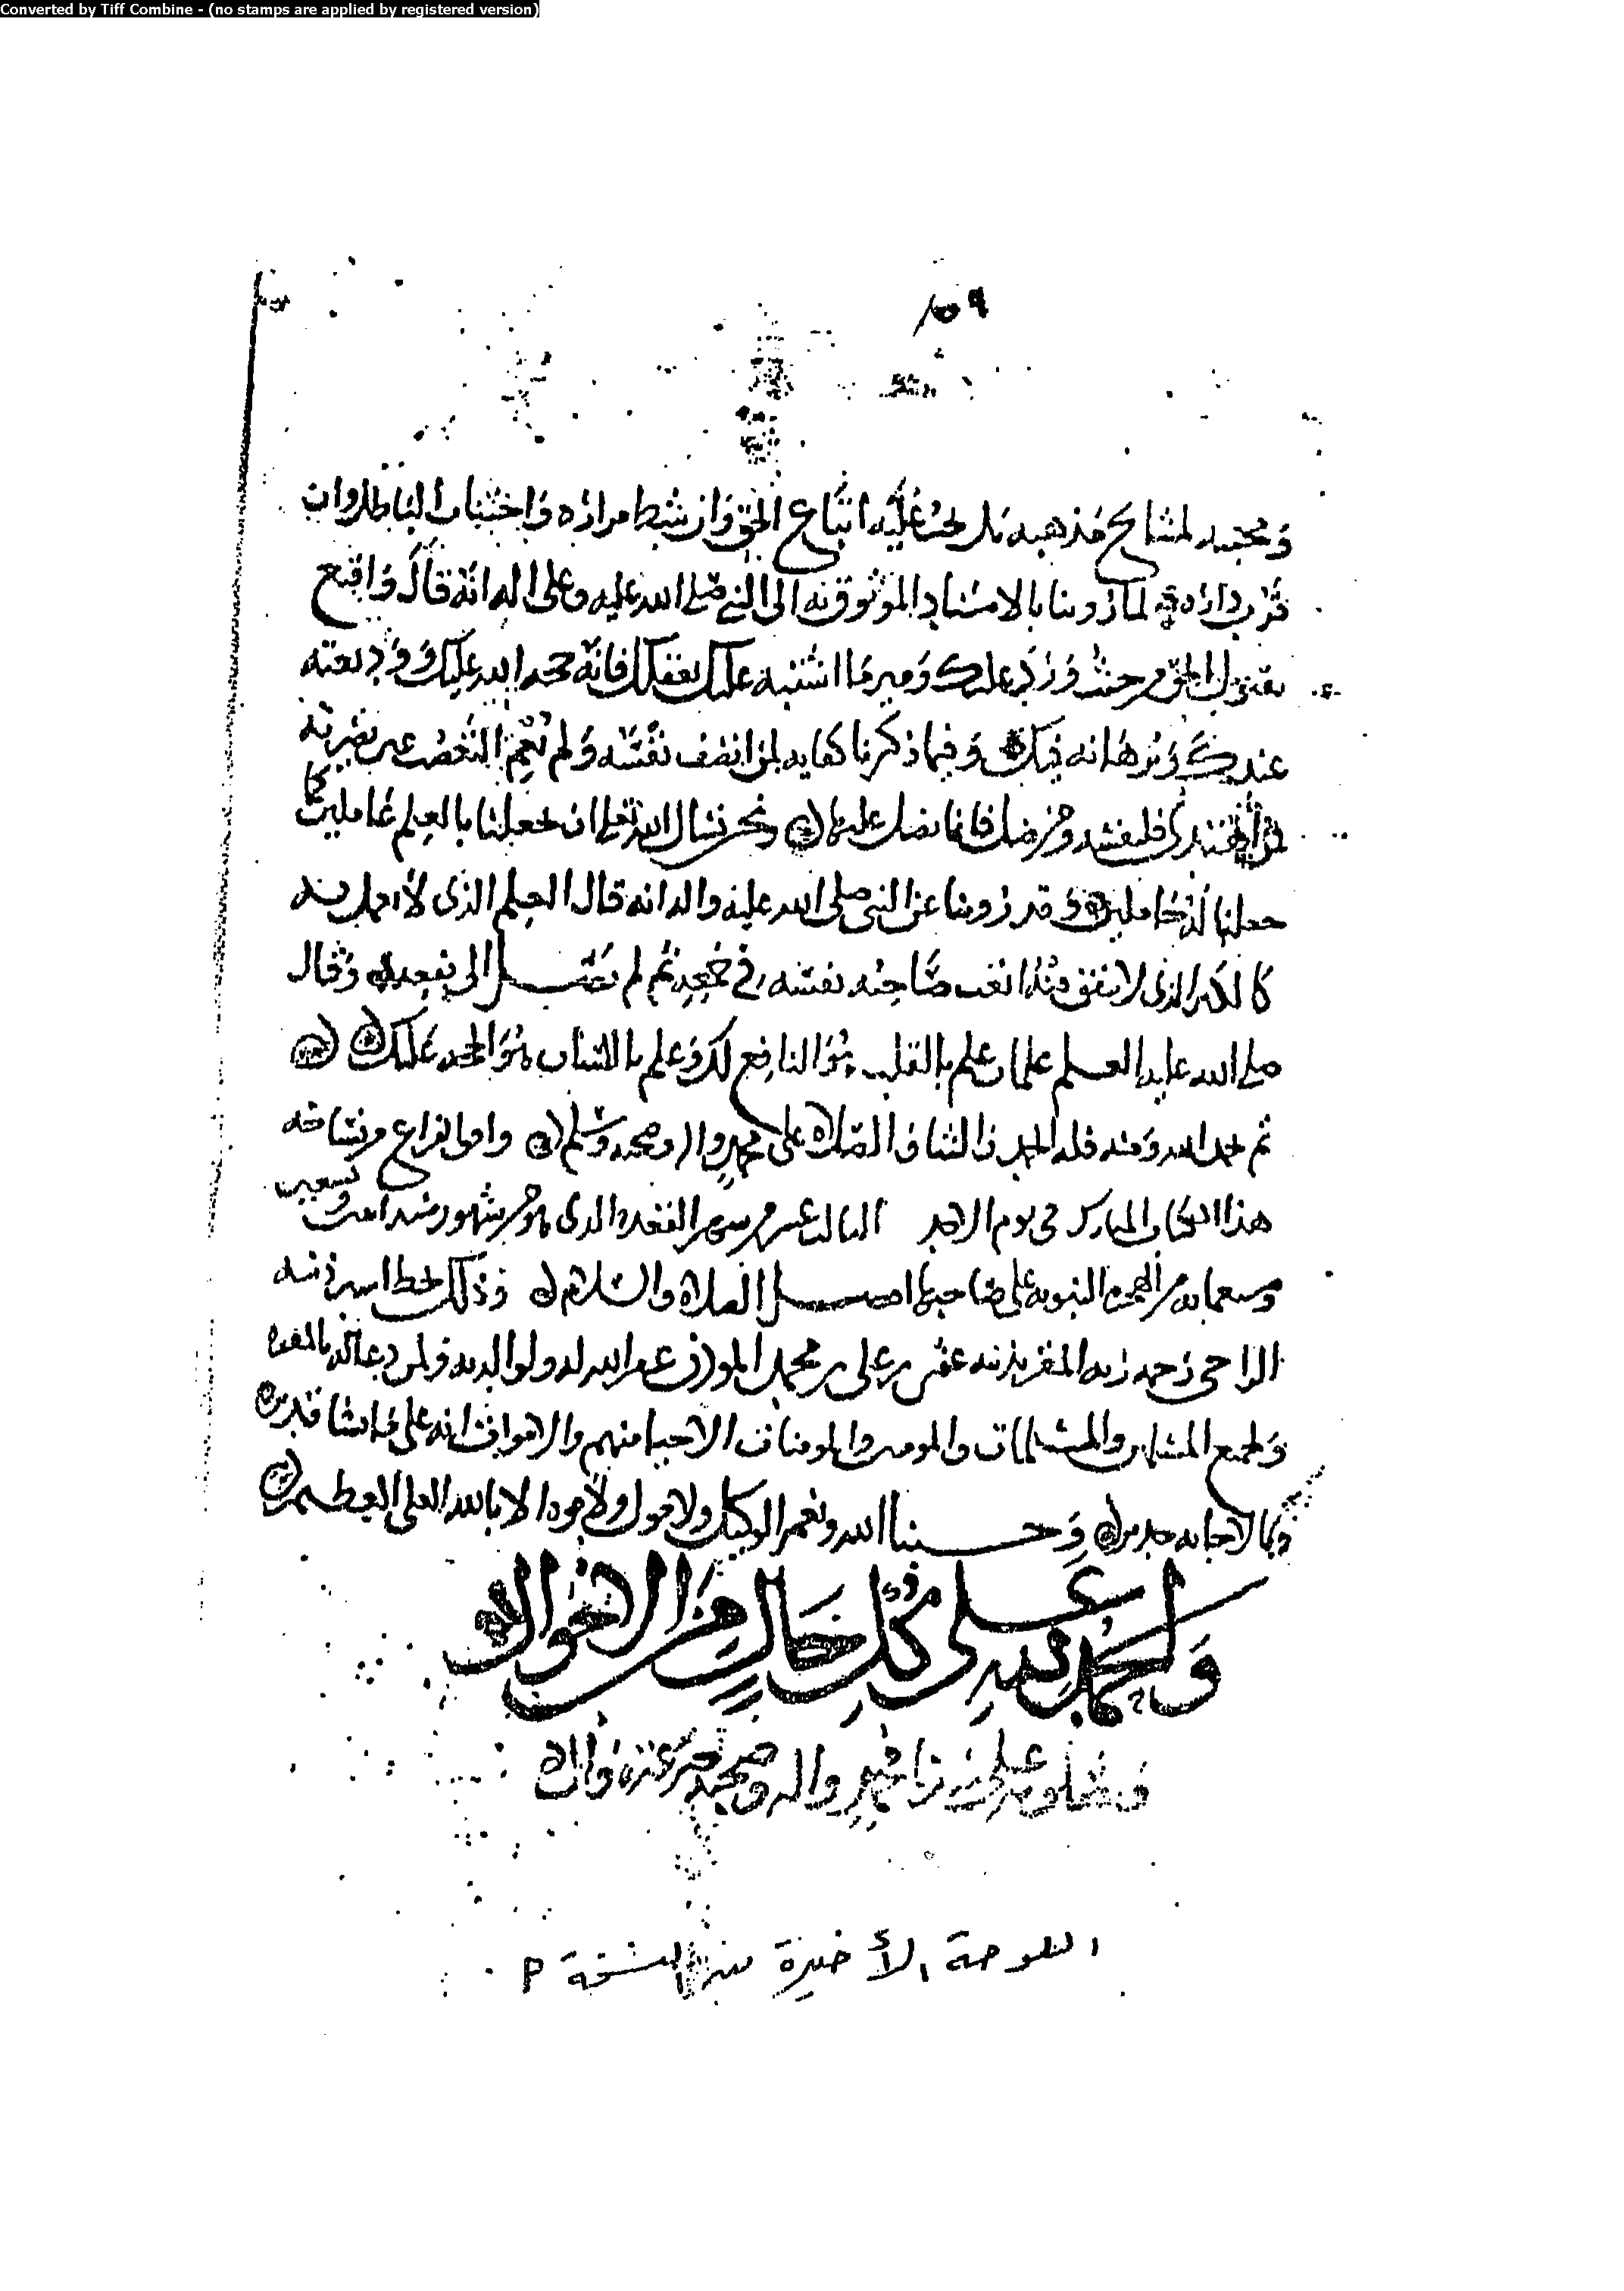 Converted by Tiff Combine - (no stamps are applied by registered version)
ومحبته لمشايخ مذهبه بل يجب عليه اتباع الحق وان شط مزاره واجتناب الباطل وان
قرب داره لما روينا بالاسناد الموثوق به الى النبي صلى الله عليه وعلى اله انه قال واقبع
بقبول الحق من حيث ورد عليك وميز ما اشتبه عليك بعقلك فانه حجه الله عليك ووديعته
عندك وبرهانه فيك وفيما ذكرنا كفايه لمن انصف نفسه ولم التعصب عين بصيرته
فمن اهتدى فلنفسه ومن ضل فانما يضل عليها ونحن نسال الله تعلى ان يجعلنا بالعلم عاملين كما
جعلنا له حاملين وقد روينا عن النبي صلى الله عليه واله انه قال العلم الذي لا يعمل به
كالكنز الذي لا ينفق منه اتعب صاحبه نفسه في جمعه ثم لم يصل الى نفعه وقال
صلى الله عليه العلم علمان علم بالقلب هو النافع لك وعلم باللسان هو الحجه عليك
ثم بحمد الله ومنه فله الحمد والثنا والصلاه على محمد واله وصحبه وسلم وافق الفراغ من نساخه
هذا الكتاب المبارك في يوم الاحد الثالث عشر من شهر القعده الذي هو من شهور سنه
وتسعين
وسبعمايه من الهجره النبويه على صاحبها افضل الصلاه والسلام وذلك بخط اسير ذنبه
الراجي رحمه ربه المقر بذنبه بن علي بن محمد غفر الله له ولوالديه ولمن دعا له بالمغفره
ولجميع المسلمين والمسلمات والمومنين والمومنات الاحيا منهم والاموات انه على ما يشا قدير
وبالاجابه جدير وحسبنا الله ونعم الوكيل ولا حول ولا قوه الا بالله العلي العظيم
والحمد لله على كل حال من الاحوال
وصلواته على سيدنا محمد واله وصحبه خير عتره وال
اللوحة الأخيرة من النسخة م